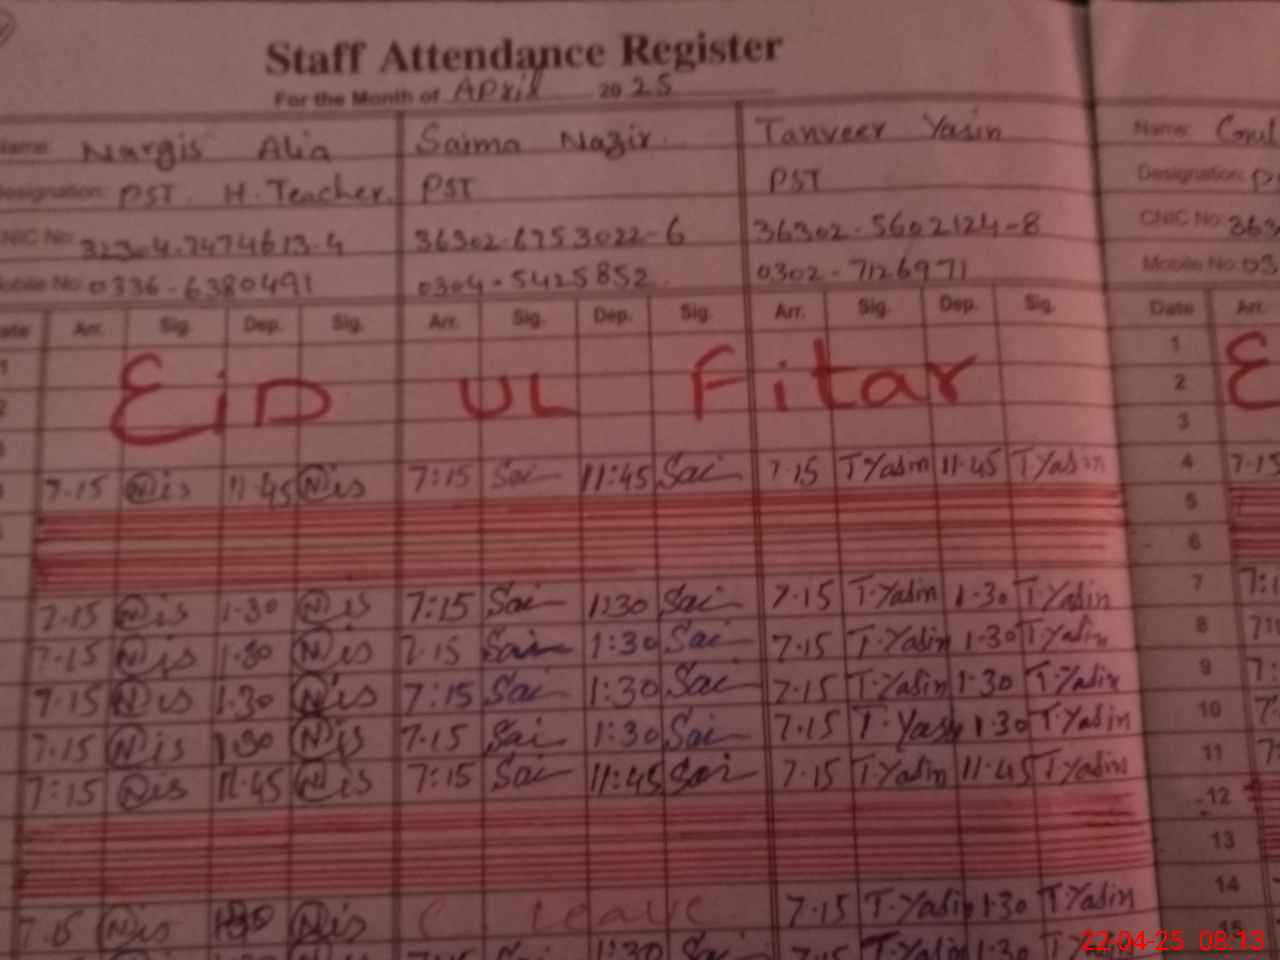 Staff Attendance Register
For the Month of April 2025
Name: Nargis Alia Saima Nazir Tanveer Yasin Name:
Designation: PST. H. Teacher. PST PST Designation:
CNIC No: 32304-7474613-4 36302-6753022-6 36302-5602124-8 CNIC No: 363
Mobile No: 0336-6380491 0304-5425852 0302-7126971 Mobile No: 03
Arr. Sig. Dep. Sig. Arr. Sig. Dep. Sig. Arr. Sig. Dep. Sig. Date Arr.
1
EiD UL Fitar 2
3
7.15 Nis 11.45 Nis 7:15 Sai 11:45 Sai 7.15 T.Yasin 11.45 T.Yasin 4 7.15
5
6
7.15 Nis 1.30 Nis 7:15 Sai 1:30 Sai 7.15 T.Yasin 1.30 T.Yasin 7
7.15 Nis 1.30 Nis 7.15 Sai 1:30 Sai 7.15 T.Yasin 1.30 T.Yasin 8
7.15 Nis 1.30 Nis 7:15 Sai 1:30 Sai 7.15 T.Yasin 1.30 T.Yasin 9
7.15 Nis 1.30 Nis 7.15 Sai 1:30 Sai 7.15 T.Yasin 1.30 T.Yasin 10
7:15 Nis 11.45 Nis 7:15 Sai 11:45 Sai 7.15 T.Yasin 11.45 T.Yasin 11
12
13
7.15 Nis 1.30 Nis Leave 7.15 T.Yasin 1.30 T.Yasin 14
1:30 Sai 7.15 T.Yasin 1.30 15
22-04-25 08:13